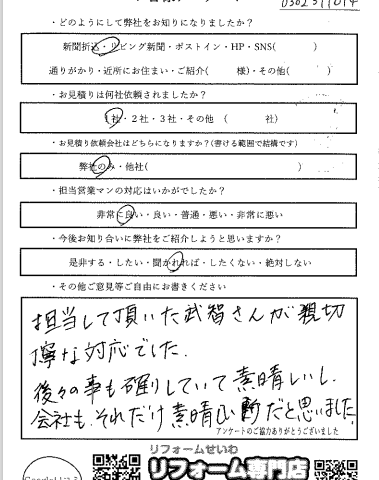 ・どのようにして弊社をお知りになりましたか？
新聞折込・リビング新聞・ポストイン・HP・SNS(　　　　)
通りがかり・近所にお住まい・ご紹介(　　　様)・その他(　　　)
・お見積りは何社依頼されましたか？
1社・2社・3社・その他　(　　　　社)
・お見積り依頼会社はどちらになりますか？(書ける範囲で結構です)
弊社のみ・他社(　　　　　　　　　　　　)
・担当営業マンの対応はいかがでしたか？
非常に良い・良い・普通・悪い・非常に悪い
・今後お知り合いに弊社をご紹介しようと思いますか？
是非する・したい・聞かれれば・したくない・絶対しない
・その他ご意見等ご自由にお書きください
担当して頂いた武智さんが親切
寧な対応でした.
後々の事も確りしていて素晴しいし.
会社も.それだけ素晴しい所だと思いました.
アンケートのご協力ありがとうございました
リフォームせいわ
Google口コミ
リフォーム専門店